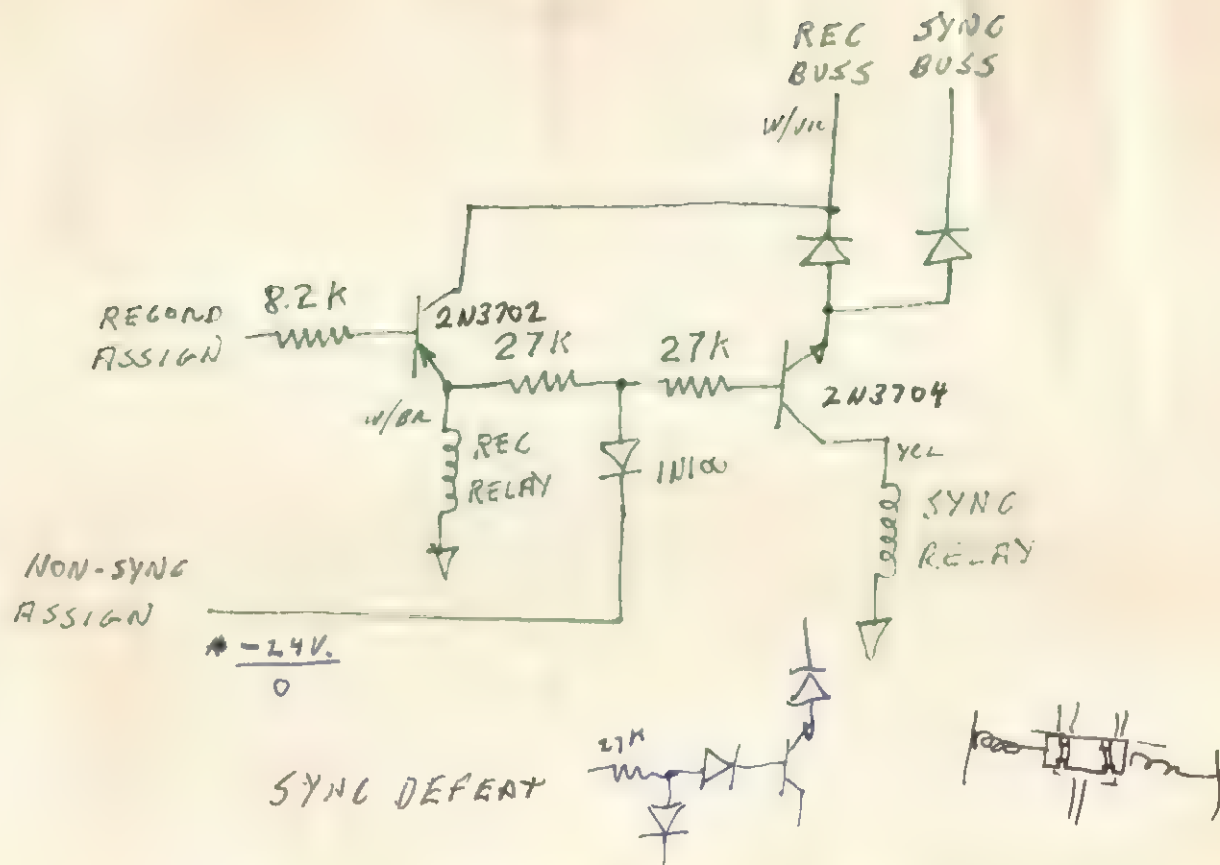 REC SYNC
BUSS BUSS
8.2K
RECORD
ASSIGN
2N3702
27K
27K
2N3704
W/BR
REC
RELAY
1N100
YEL
SYNC
RELAY
NON-SYNC
ASSIGN
-24V.
0
27K
SYNC DEFEAT